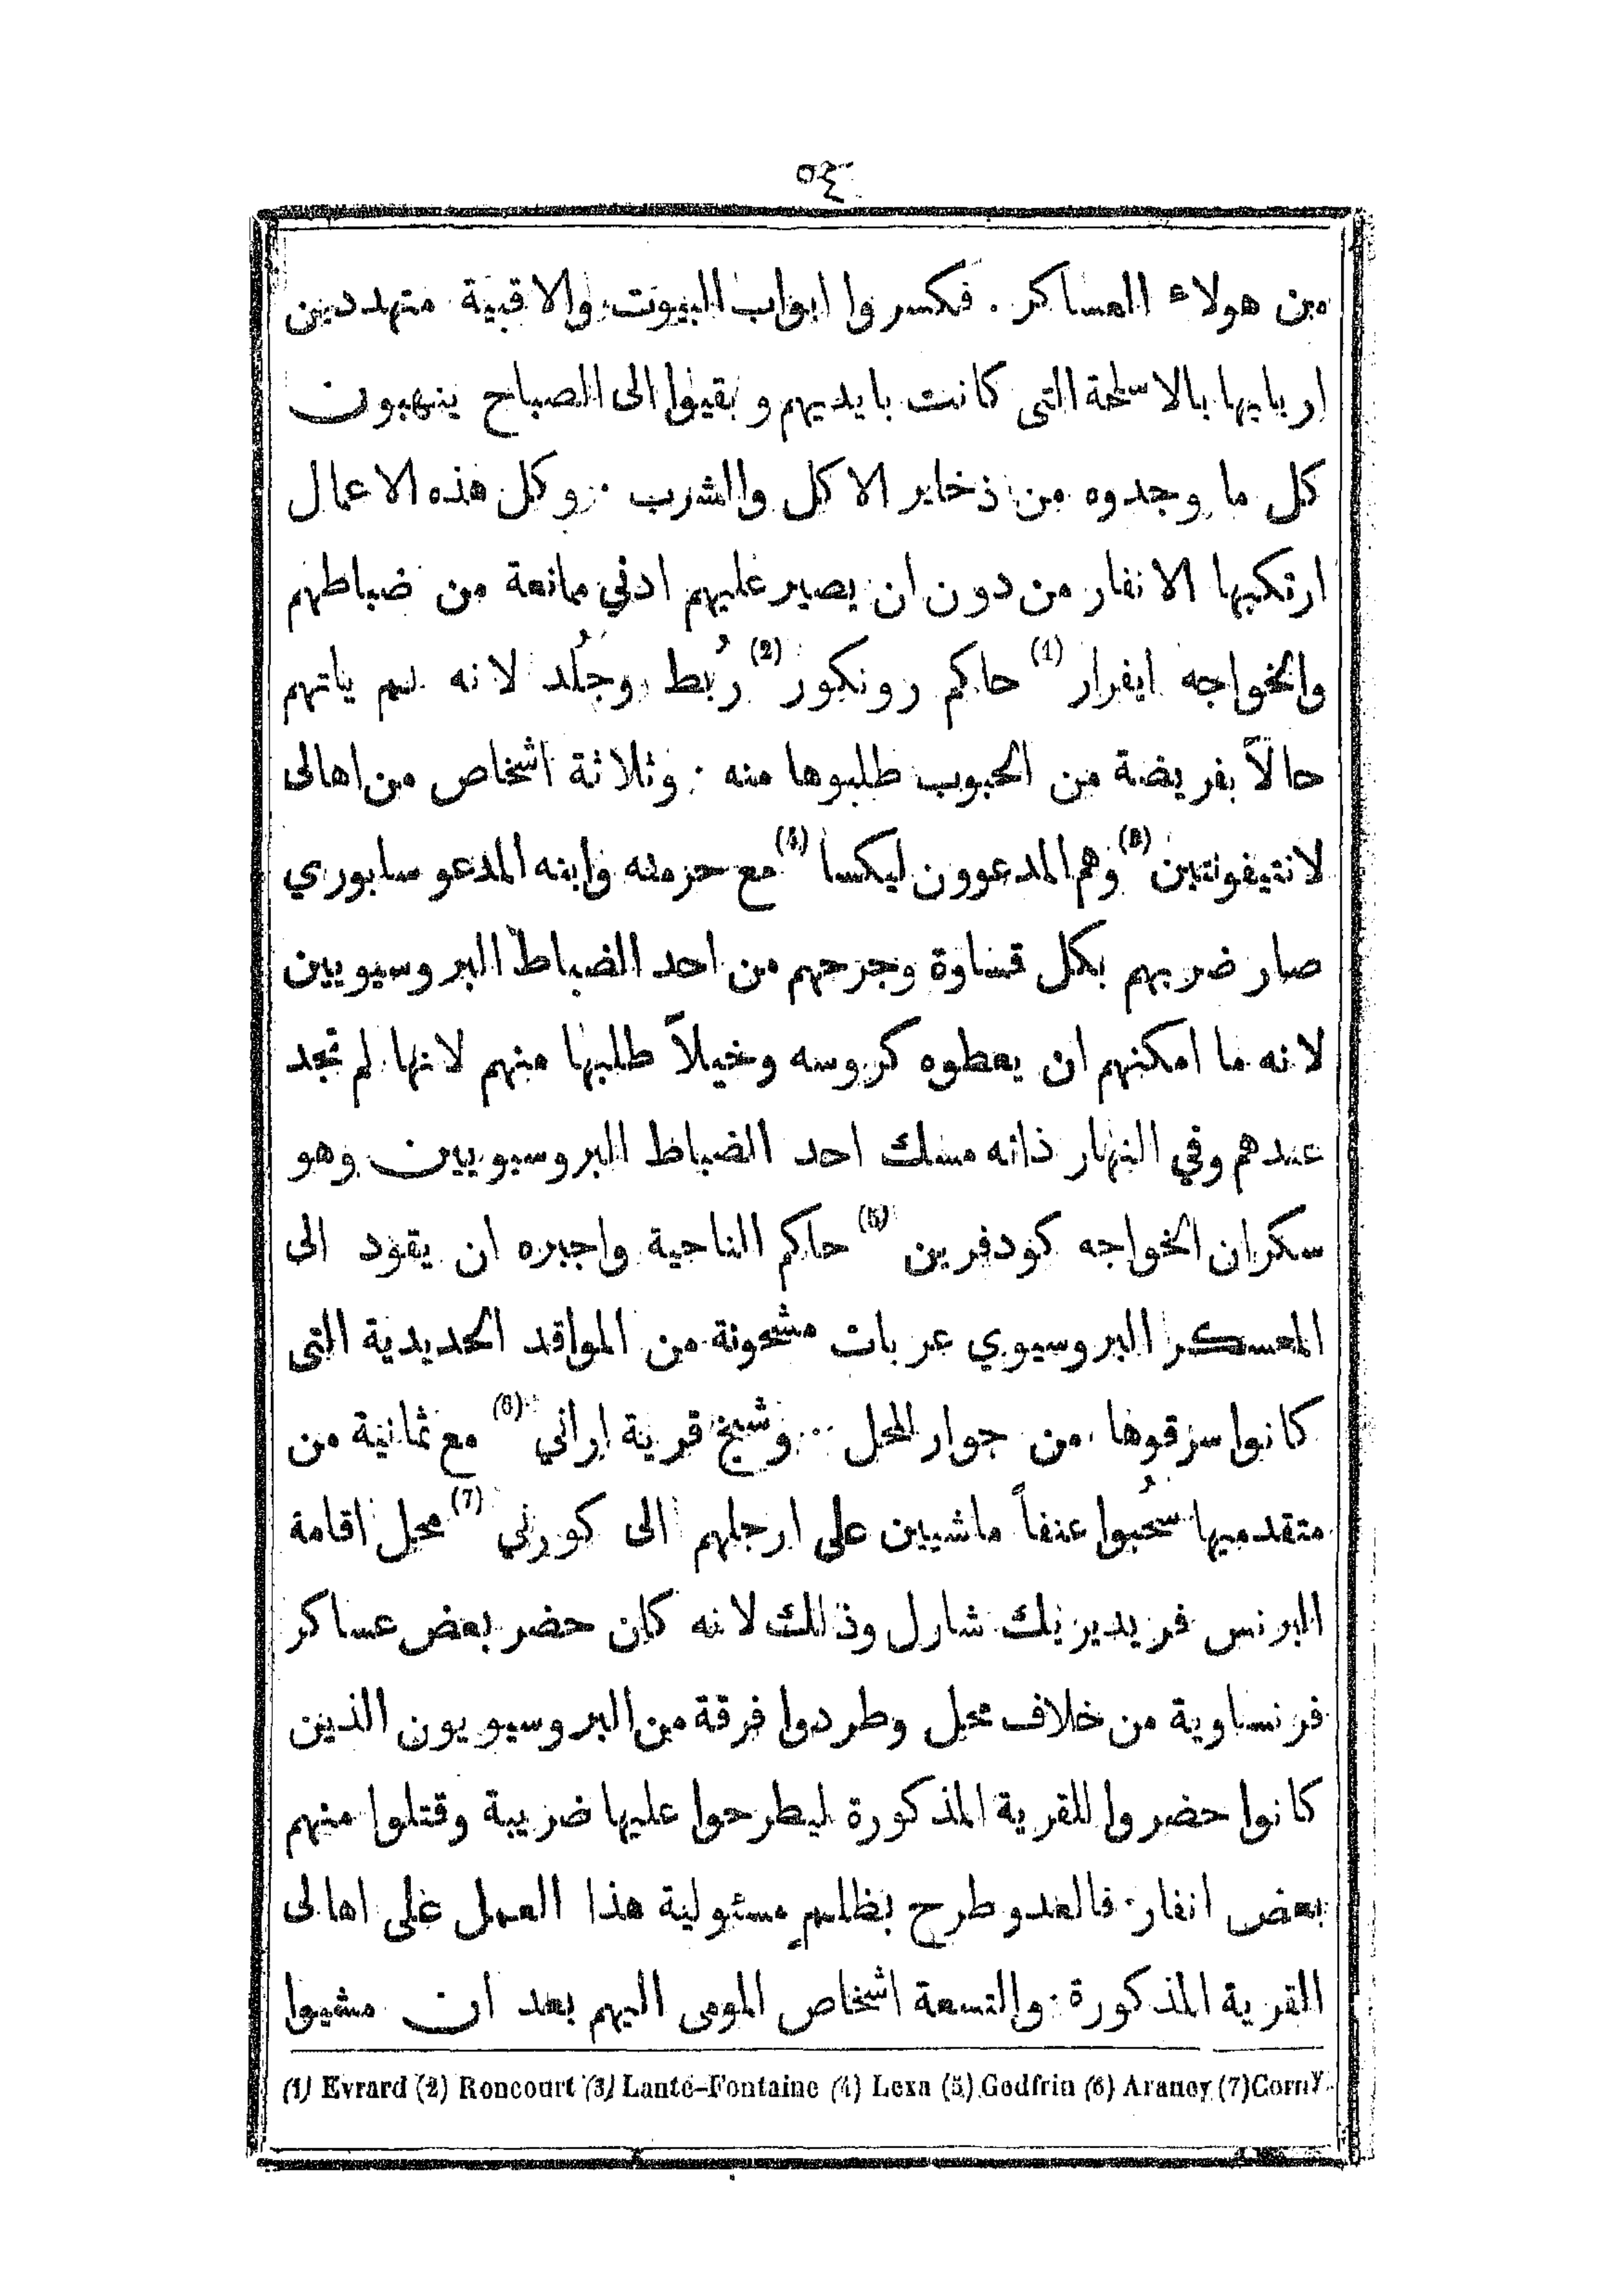 ٥٤
من هولاء العساكر . فكسروا ابواب البيوت والاقبية متهددين
اربابها بالاسلحة التى كانت بايديهم وبقيوا الى الصباح ينهبون
كل ما وجدوه من ذخاير الاكل والشرب . وكل هذه الاعمال
ارتكبها الانفار من دون ان يصير عليهم ادني ممانعة من ضباطهم
والخواجه ايفرار (1) حاكم رونكور (2) رُبط وجُلد لانه لم ياتهم
حالاً بفريضة من الحبوب طلبوها منه . وثلاثة اشخاص من اهالى
لانتيفونتين (3) وهم المدعوون ليكسا (4) مع حرمته وابنه المدعو سابوري
صار ضربهم بكل قساوة وجرحهم من احد الضباط البروسيويين
لانه ما امكنهم ان يعطوه كروسه وخيلاً طلبها منهم لانها لم تجد
عندهم وفي النهار ذاته مسك احد الضباط البروسيويين وهو
سكران الخواجه كودفرين (5) حاكم الناحية واجبره ان يقود الى
المعسكر البروسيوي عربات مشحونة من المواقد الحديدية التى
كانوا سرقوها من جوار المحل . وشيخ قرية اراني (6) مع ثمانية من
متقدميها سُحبوا عنفاً ماشيين على ارجلهم الى كورني (7) محل اقامة
البرنس فريديريك شارل وذلك لانه كان حضر بعض عساكر
فرنساوية من خلاف محل وطردوا فرقة من البروسيويون الذين
كانوا حضروا للقرية المذكورة ليطرحوا عليها ضريبة وقتلوا منهم
بعض انفار . فالعدو طرح بظلمٍ مسئولية هذا العمل على اهالى
القرية المذكورة . والتسعة اشخاص المومى اليهم بعد ان مشيوا
(1) Evrard (2) Roncourt (3) Lanté-Fontaine (4) Lexa (5) Godfrin (6) Araney (7) Corny